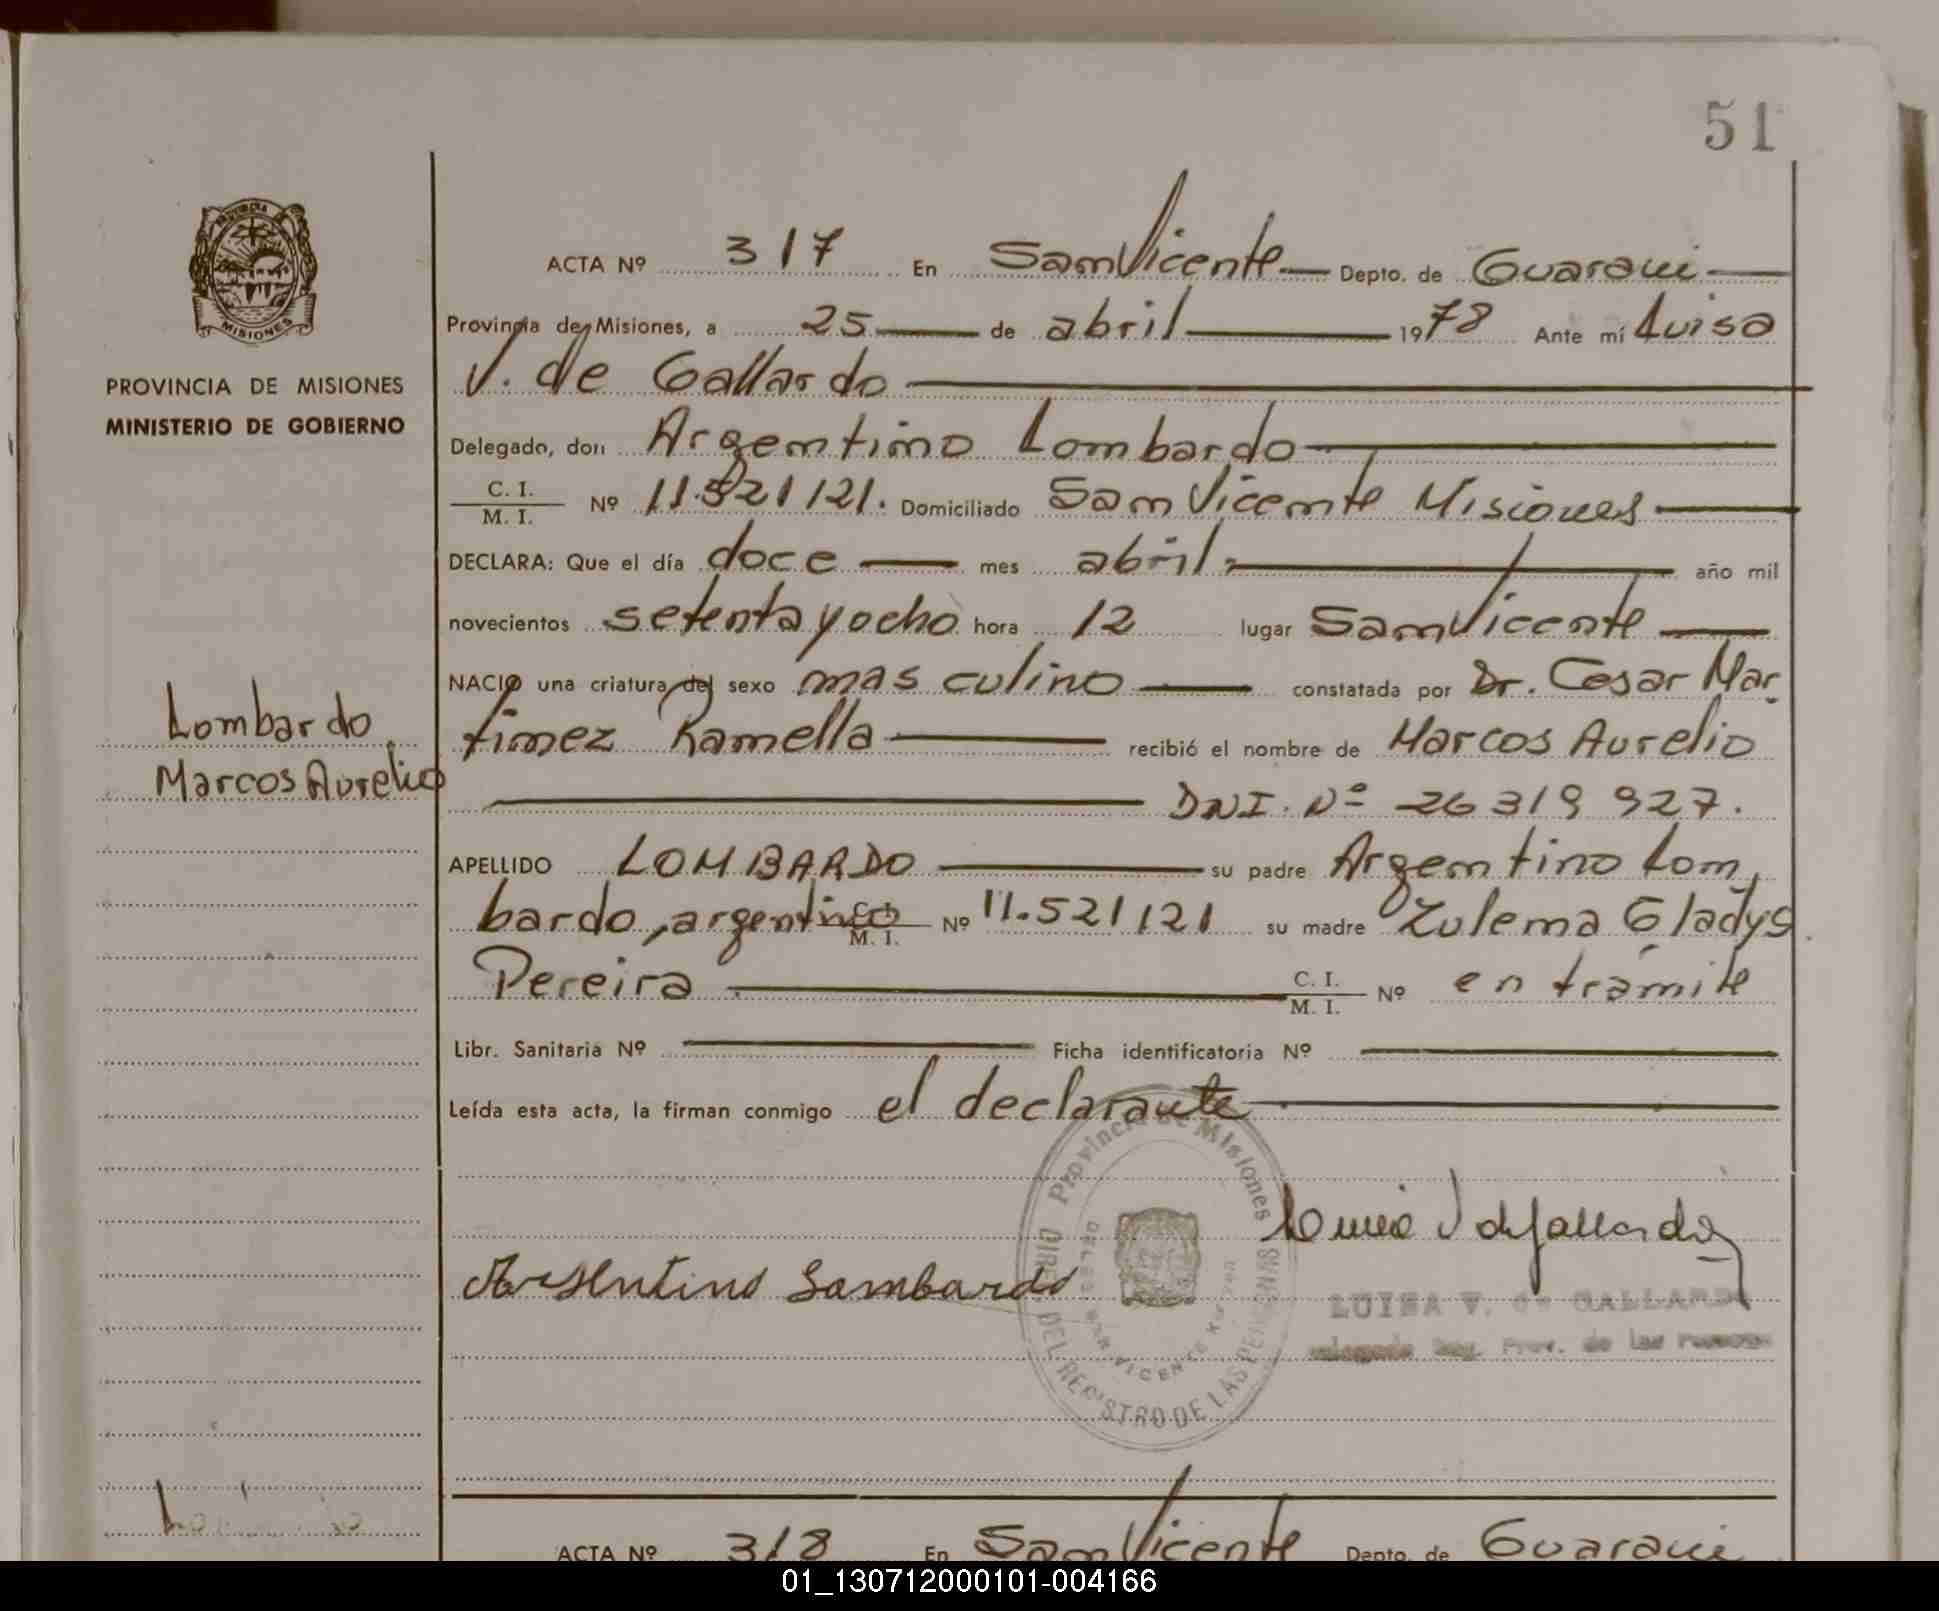 51
PROVINCIA DE MISIONES
MINISTERIO DE GOBIERNO
Lombardo
Marcos Aurelio
ACTA Nº 317 En San Vicente Depto. de Guarani
Provincia de Misiones, a 25 de abril 1978 Ante mí Luisa
V. de Gallardo
Delegado, don Argentino Lombardo
C. I. / M. I. Nº 11.521121. Domiciliado San Vicente Misiones
DECLARA: Que el día doce mes abril año mil
novecientos setenta y ocho hora 12 lugar San Vicente
NACIO una criatura del sexo masculino constatada por Dr. Cesar Mar
tinez Ramella recibió el nombre de Marcos Aurelio
DNI. Nº 26319927.
APELLIDO LOMBARDO su padre Argentino Lom
bardo, argentino C. I. / M. I. Nº 11.521121 su madre Zulema Gladys
Pereira C. I. / M. I. Nº en tramite
Libr. Sanitaria Nº Ficha identificatoria Nº
Leída esta acta, la firman conmigo el declarante
Provincia de Misiones
DIRE. DEL REGISTRO DE LAS PERSONAS
SAN VICENTE
Luisa V de Gallardo
Argentino Lombardo
LUISA V. de GALLARDO
Delegada Reg. Prov. de las Personas
ACTA Nº 318 En San Vicente Depto. de Guarani
01_130712000101-004166